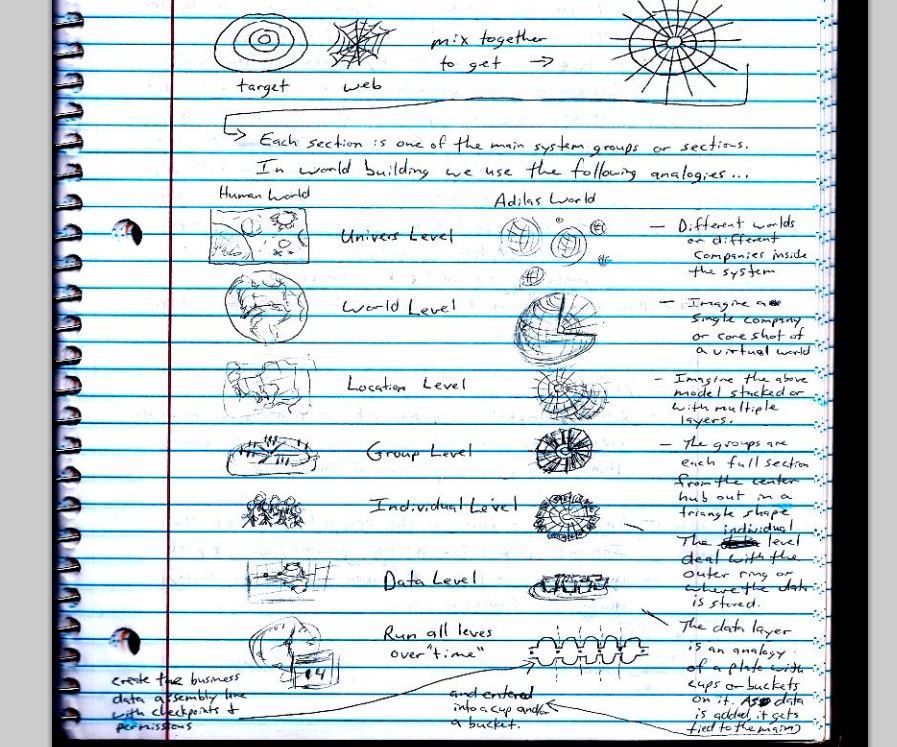 mix together
to get →
target
web
Each section is one of the main system groups or sections.
In world building we use the following analogies...
Human World
Adilas World
Univers Level
- Different worlds
or different
companies inside
the system
World Level
- Imagine a
single company
or core shot of
a virtual world
Location Level
- Imagine the above
model stacked or
with multiple
layers.
Group Level
- The groups are
each full section
from the center
hub out in a
triangle shape
Individual Level
individual
The level
deal with the
outer ring or
where the data
is stored.
Data Level
The data layer
is an analogy
of a plate with
cups or buckets
on it. As data
is added, it gets
tied to the main
Run all leves
over "time"
04
create the business
data assembly line
with checkpoints &
permissions
and entered
into a cup and/or
a bucket.